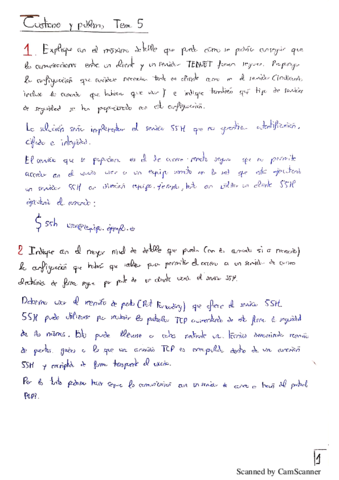 Cuestiones y problemas, Tema 5
1. Explique con el máximo detalle que pueda cómo se podría conseguir que
las comunicaciones entre un cliente y un servidor TELNET fueran seguras. Proponga
la configuración que considere necesaria tanto en cliente como en el servidor (indicando,
incluso el comando que habría que usar) e indique también qué tipo de servicios
de seguridad se han proporcionado con esta configuración.
La solución sería implementar el servicio SSH que nos garantiza autentificación,
cifrado e integridad.
El servicio que se proporciona es el de acceso remoto seguro que nos permite
acceder en el modo a un equipo remoto en la red que esté ejecutando
un servidor SSH en dicho equipo. ejemplo, en un cliente SSH
ejecutará el comando:
$ ssh
2. Indique con el mayor nivel de detalle que pueda (con el comando si es necesario)
la configuración que habría que para permitir el acceso a un servidor de correo
electrónico de forma segura por parte de un cliente usando el servidor SSH.
Debemos usar el reenvío de puertos (Port Forwarding) que ofrece el servicio SSH.
SSH puede utilizarse para los protocolos TCP de esta forma la seguridad
de los mismos. Esto puede llevarse a cabo mediante una técnica denominada reenvío
de puertos, gracias a la que una conexión TCP es encapsulada dentro de una conexión
SSH y encriptada de forma transparente al usuario.
Por lo tanto podemos hacer segura la comunicación con un servidor de correo a través del protocolo
POP3.
1
Scanned by CamScanner